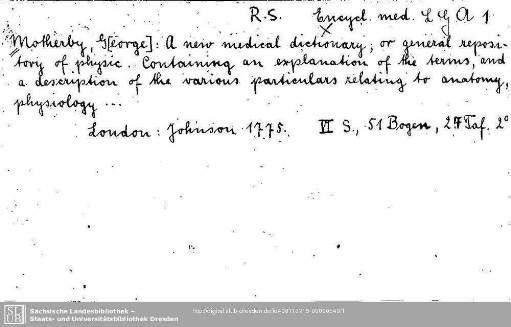 R.S. Encycl. med. L G A 1
Motherby, G[eorge]: A new medical dictionary; or general reposi-
tory of physic. Containing an explanation of the terms, and
a description of the various particulars relating to anatomy,
physiology ...
London: Johnson 1775. VI S., 51 Bogen, 27 Taf. 2°
Sächsische Landesbibliothek –
Staats- und Universitätsbibliothek Dresden